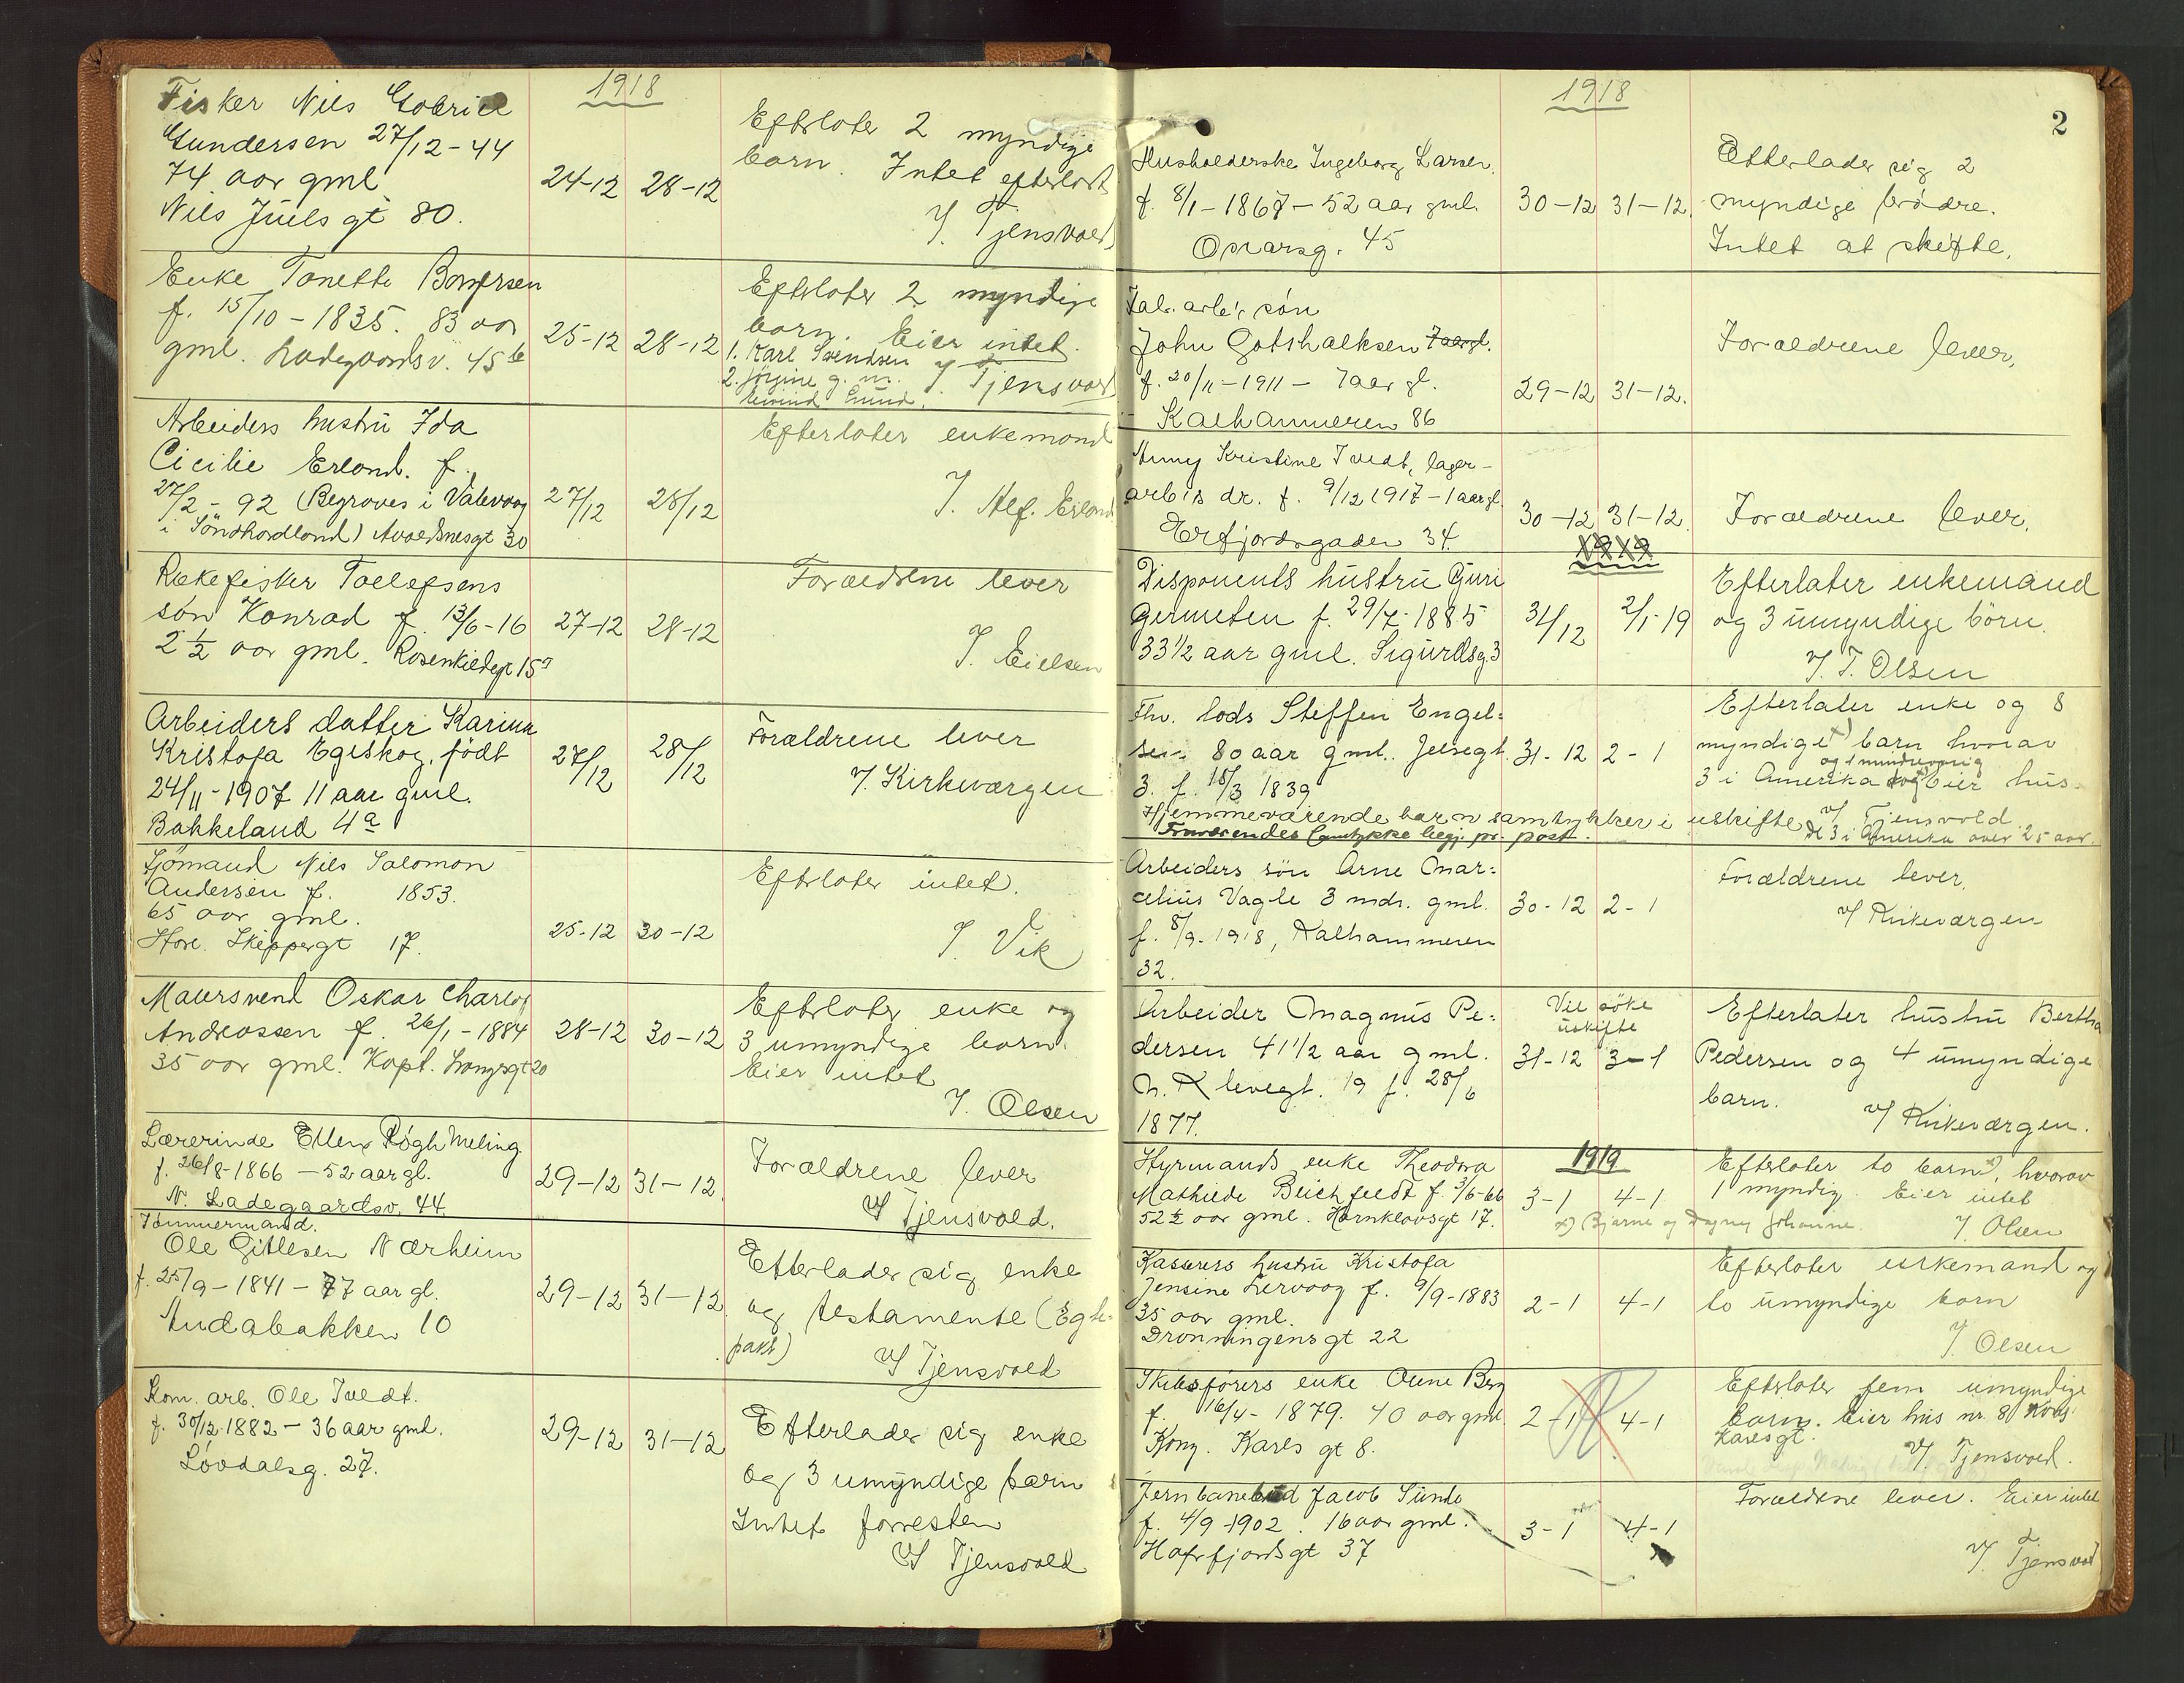 1918
Fisker Nils Gabriel
Gundersen 27/12-44
74 aar gml
Nils Juels gt 80.
24-12 28-12
Efterlater 2 myndige
barn. Intet efterlatt
V. Tjensvold
Enke Tonette
f. 15/10-1835. 83 aar
gml. Ladegaardsv. 45 b
25-12 28-12
Efterlater 2 myndige
barn. Eier intet.
1. Karl Svendsen
2. Jörgine g. m.
Eivind Lund.
V. Tjensvold
Arbeiders hustru Ida
Cicilie Erland. f.
27/2-92 (Begraves i Valevaag
i Söndhordland) Avaldsnesgt 30
27/12 28/12
Efterlater enkemand
V. Alf. Erland
Rækefisker Toellefsens
sön Konrad f. 13/6-16
2 1/2 aar gml. Rosenkildegt 15
27-12 28-12
Forældrene lever
V. Eielsen
Arbeiders datter Karina
Kristofa Egeskog, födt
24/11-1907 11 aar gml.
Bakkeland 4a
27/12 28/12
Forældrene lever
V. Kirkeværgen
Sjömand Nils Salomon
Andersen f. 1853.
65 aar gml.
Store Skippergt 17.
25-12 30-12
Efterlater intet.
V. Vik
Malersvend Oskar Charley
Andreassen f. 26/1-1884
35 aar gml. Kapt. Langesgt 20
28-12 30-12
Efterlater enke og
3 umyndige barn.
Eier intet
V. Olsen
Lærerinde Ellen Røgh Meling
f. 26/8-1866 - 52 aar gl.
N. Ladegaardsv. 44.
29-12 31-12
Forældrene lever
V/ Tjensvold.
Tömmermand.
Ole Gitlesen Nærheim
f. 25/9-1841 - 77 aar gl.
Andabakken 10
29-12 31-12
Efterlader sig enke
og testamente (Egte-
pakt)
V/ Tjensvold
Kom. arb. Ole Tvedt.
f. 30/12 1882 - 36 aar gml.
Lövdalsg. 27.
29-12 31-12
Efterlader sig enke
og 3 umyndige barn
Intet forresten
V/ Tjensvold
2
1918
Husholderske Ingeborg Larsen.
f. 8/1-1867 - 52 aar gml.
Oscarsg. 45
30-12 31-12.
Efterlader sig 2
myndige brödre.
Intet at skifte.
Fab. arb.s sön
John Gotshalksen 7 aar gl.
f. 20/11-1911 - 7 aar gl.
Kalhammeren 86
29-12 31-12.
Forældrene lever.
Anny Kristine Tvedt, lager-
arb's dr. f. 9/12 1917 - 1 aar gl.
Erfjordsgaden 34.
30-12 31-12.
Forældrene lever.
1919
Disponents hustru Guri
Germeten f. 29/7-1885
33 1/2 aar gml. Sigurdsg 3
31/12 2/1-19
Efterlater enkemand
og 3 umyndige börn.
V. T. Olsen
Fhv. lods Steffen Engel=
sen 80 aar gml. Jelsegt.
3. f. 15/3 1839
31-12 2-1
Efterlater enke og 8
myndige x) barn hvorav
og 1 mindreaarig
3 i Amerika og eier hus.
V/ Tjensvold
Hjemmeværende barn samtykker i uskifte
De 3 i Amerika over 25 aar.
Fraværendes samtykke begj. pr. post.
Arbeiders sön Arne Mar=
celius Vagle 3 mdr. gml.
f. 8/9-1918, Kalhammeren
32.
30-12 2-1
Forældrene lever.
V/ Kirkeværgen
Arbeider Magnus Pe=
dersen 41 1/2 aar gml.
N. Klevegt. 19 f. 28/6
1877.
Vil söke
uskifte
31-12 3-1
Efterlater hustru Bertha
Pedersen og 4 umyndige
barn.
V/ Kirkeværgen.
1919
Styrmands enke Theodora
Mathilde Beichfeldt f. 3/6-66
52 1/2 aar gml. Harnklovsgt 17.
3-1 4-1
Efterlater to barn x), hvorav
1 myndig. Eier intet
x) Bjarne og Dagny Johanne.
V. Olsen
Kaserers hustru Kristofa
Jensine Lervaag f. 9/9-1883
35 aar gml.
Dronningensgt 22
2-1 4-1
Efterlater enkemand og
to umyndige barn
V. Olsen
Skibsförers enke Anne Berg
f. 16/4-1879. 40 aar gml.
Kong. Karls gt 8.
2-1 4-1
Efterlater fem umyndige
barn. Eier hus nr. 8 Kong
Karlsgt.
V/ Tjensvold.
Jernbanebud Jacob Sunde
f. 4/9-1902. 16 aar gml.
Hafrsfjordsgt 37
3-1 4-1
Forældrene lever. Eier intet
V. Tjensvold